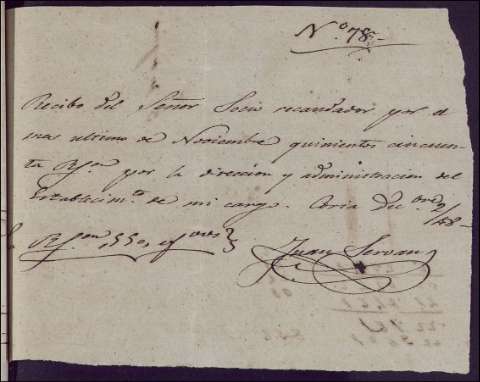 Nº 78,
Recibo del Señor Socio recaudador por el
mes ultimo de Noviembre quinientos cincuen-
ta Rsvn por la direccion y administracion del
Establecimto de mi cargo. Coria Dec
Rsvn 550,
Juan Servan